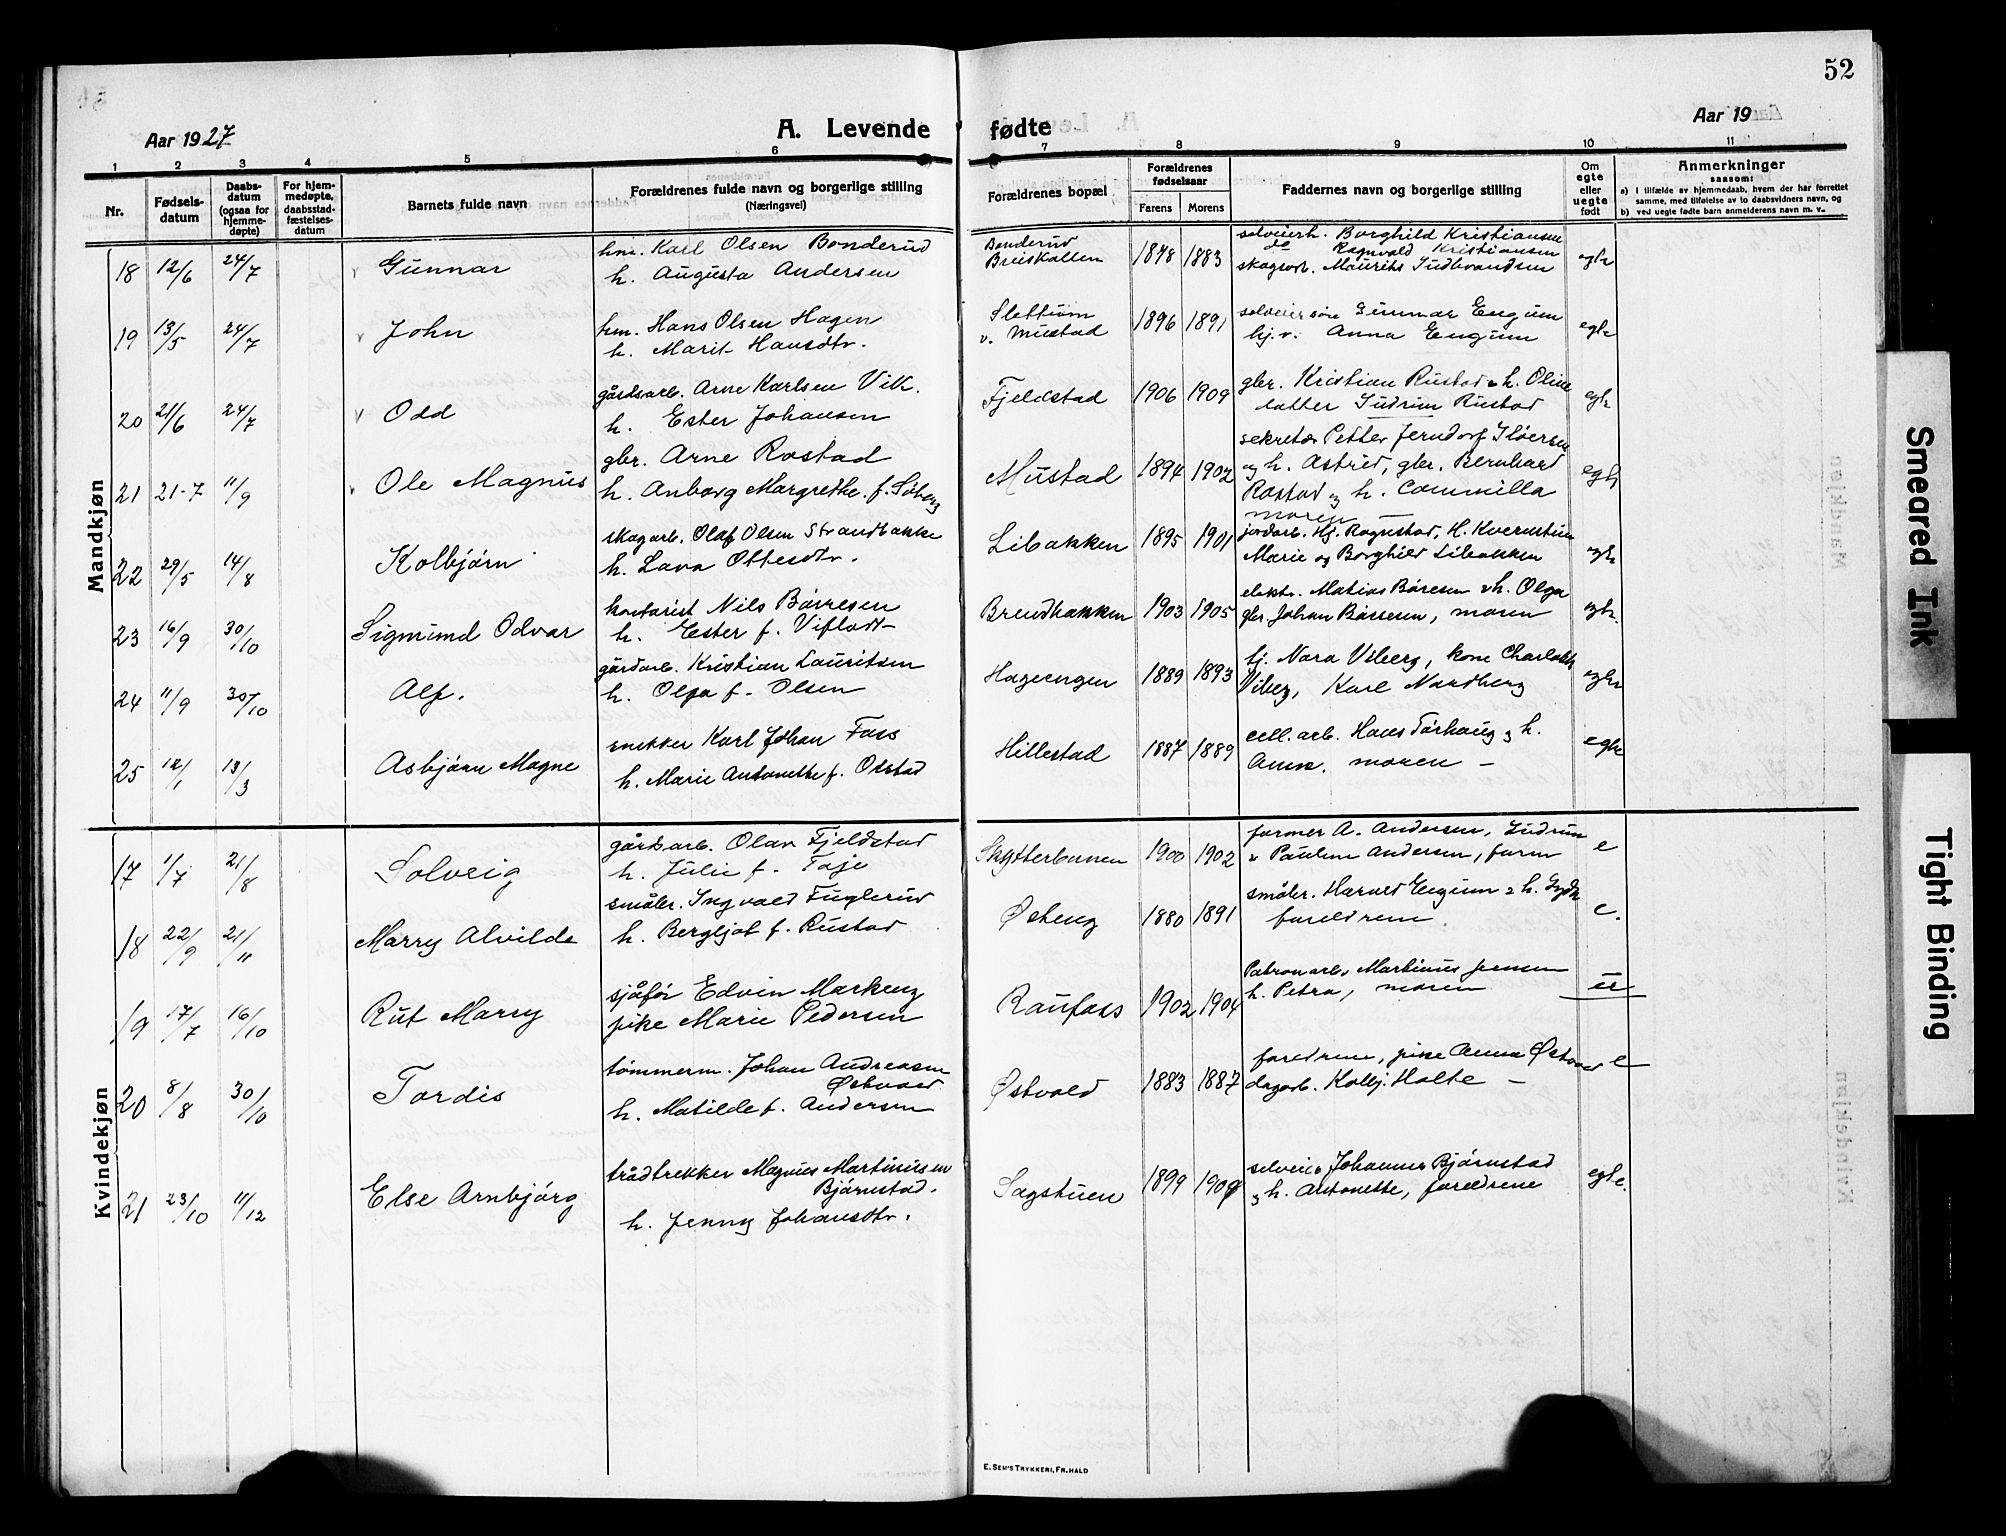 52
Aar 1927
A. Levende fødte
Aar 19
1 2 3 4 5 6 7 8 9 10 11
Nr.
Fødsels-
datum
Daabs-
datum
(ogsaa for
hjemme-
døpte)
For hjem-
medøpte,
daabsstad-
fæstelses-
datum
Barnets fulde navn
Forældrenes fulde navn og borgerlige stilling
(Næringsvei)
Forældrenes bopæl
Forældrenes
fødselsaar
Farens Morens
Faddernes navn og borgerlige stilling
Om
egte
eller
uegte
født
Anmerkninger
saasom:
a) I tilfælde av hjemmedaab, hvem der har forrettet
samme, med tilføielse av to daabsvidners navn, og
b) ved uegte fødte barn anmelderens navn m. v.
Mandkjøn
18 12/6 24/7 Gunnar
hm. Karl Olsen Bonderud
h. Augusta Andersen
Bonderud
Breiskallen
1878 1883
selveierh. Borghild Kristiansen
do Ragnvald Kristiansen
skogsarb. Maurits Gudbrandsen
egte
19 13/5 24/7 John
hm. Hans Olsen Hagen
h. Marit Hansdtr.
Slettum
v. Mustad
1896 1891
selveiersøn Gunnar Engum
hj.v. Anna Engum
egte
20 21/6 24/7 Odd
gårdsarb. Arne Karlsen Vik.
h. Ester Johansen
Fjeldstad
1906 1909
gbr. Kristian Rustad & h. Oline
datter Gudrun Rustad
egte
21 21-7 11/9 Ole Magnus
gbr. Arne Rostad
h. Anborg Margrethe. f. Søberg
Mustad
1894 1902
sekretær Petter Jerndorf
og h. Astrid, gbr. Bernhard
Rostad og h. Cammilla
moren —
egte
22 29/5 14/8 Kolbjørn
skogarb. Olaf Olsen Strandbakke
h. Lava Ottesdtr.
Libakken
1895 1901
jordarb. Hj. Rognstad, H. Kvernstuen
Marie og Borghild Libakken
egte
23 16/9 30/10 Sigmund Odvar
kontorist Nils Børresen
h. Ester f. Viflodt
Brendbakken
1903 1905
elektr. Matias Børesen & h. Olga
gbr. Johan Børresen, moren
egte.
24 11/9 30/10 Alf.
gårdarb. Kristian Lauritsen
h. Olga f. Olsen
Hageengen
1889 1893
tj. Nora Viberg, kone Charlotte
Viberg, Karl Nordberg
egte
25 12/1 13/3 Asbjørn Magne
snekker Karl Johan Foss
h. Marie Antonette f. Olstad
Hillestad
1887 1889
cell. arb. Hans Tørhaug & h.
Anna. moren —
egte
Kvindekjøn
17 1/7 21/8 Solveig
gårdsarb. Olav Fjeldstad
h. Julie f. Toje
Skytterbanen
1900 1902
farmer A. Andersen, Gudrun
& Pauline Andersen, faren
e
18 22/9 21/11 Marry Alvilde
småbr. Ingvald Fuglerud
h. Bergljot f. Rustad
Østeng
1880 1891
småbr. Harald Engum & h. Gyda
foreldrene.
e.
19 17/7 16/10 Rut Marry
sjåfør Edvin Markeng
pike Marie Pedersen
Raufoss
1902 1904
Patronarb. Martinus Jensen
h. Petra, moren
u
20 8/8 30/10 Tordis
tømmerm. Johan Andreasen
Østvold
h. Matilde f. Andersen
Østvold
1883 1887
foreldrene, pike Anna Østvold
dagarb. Kolbj. Holte —
e
21 23/10 11/12 Else Arnbjørg
trådtrekker Magnus Martinusen
Bjørnstad.
h. Jenny Johansdtr.
Sagstuen
1899 1909
selveier Johannes Bjørnstad
& h. Antonette, foreldrene
egte.
E. SEM'S TRYKKERI, FR. HALD
Smeared Ink
Tight Binding